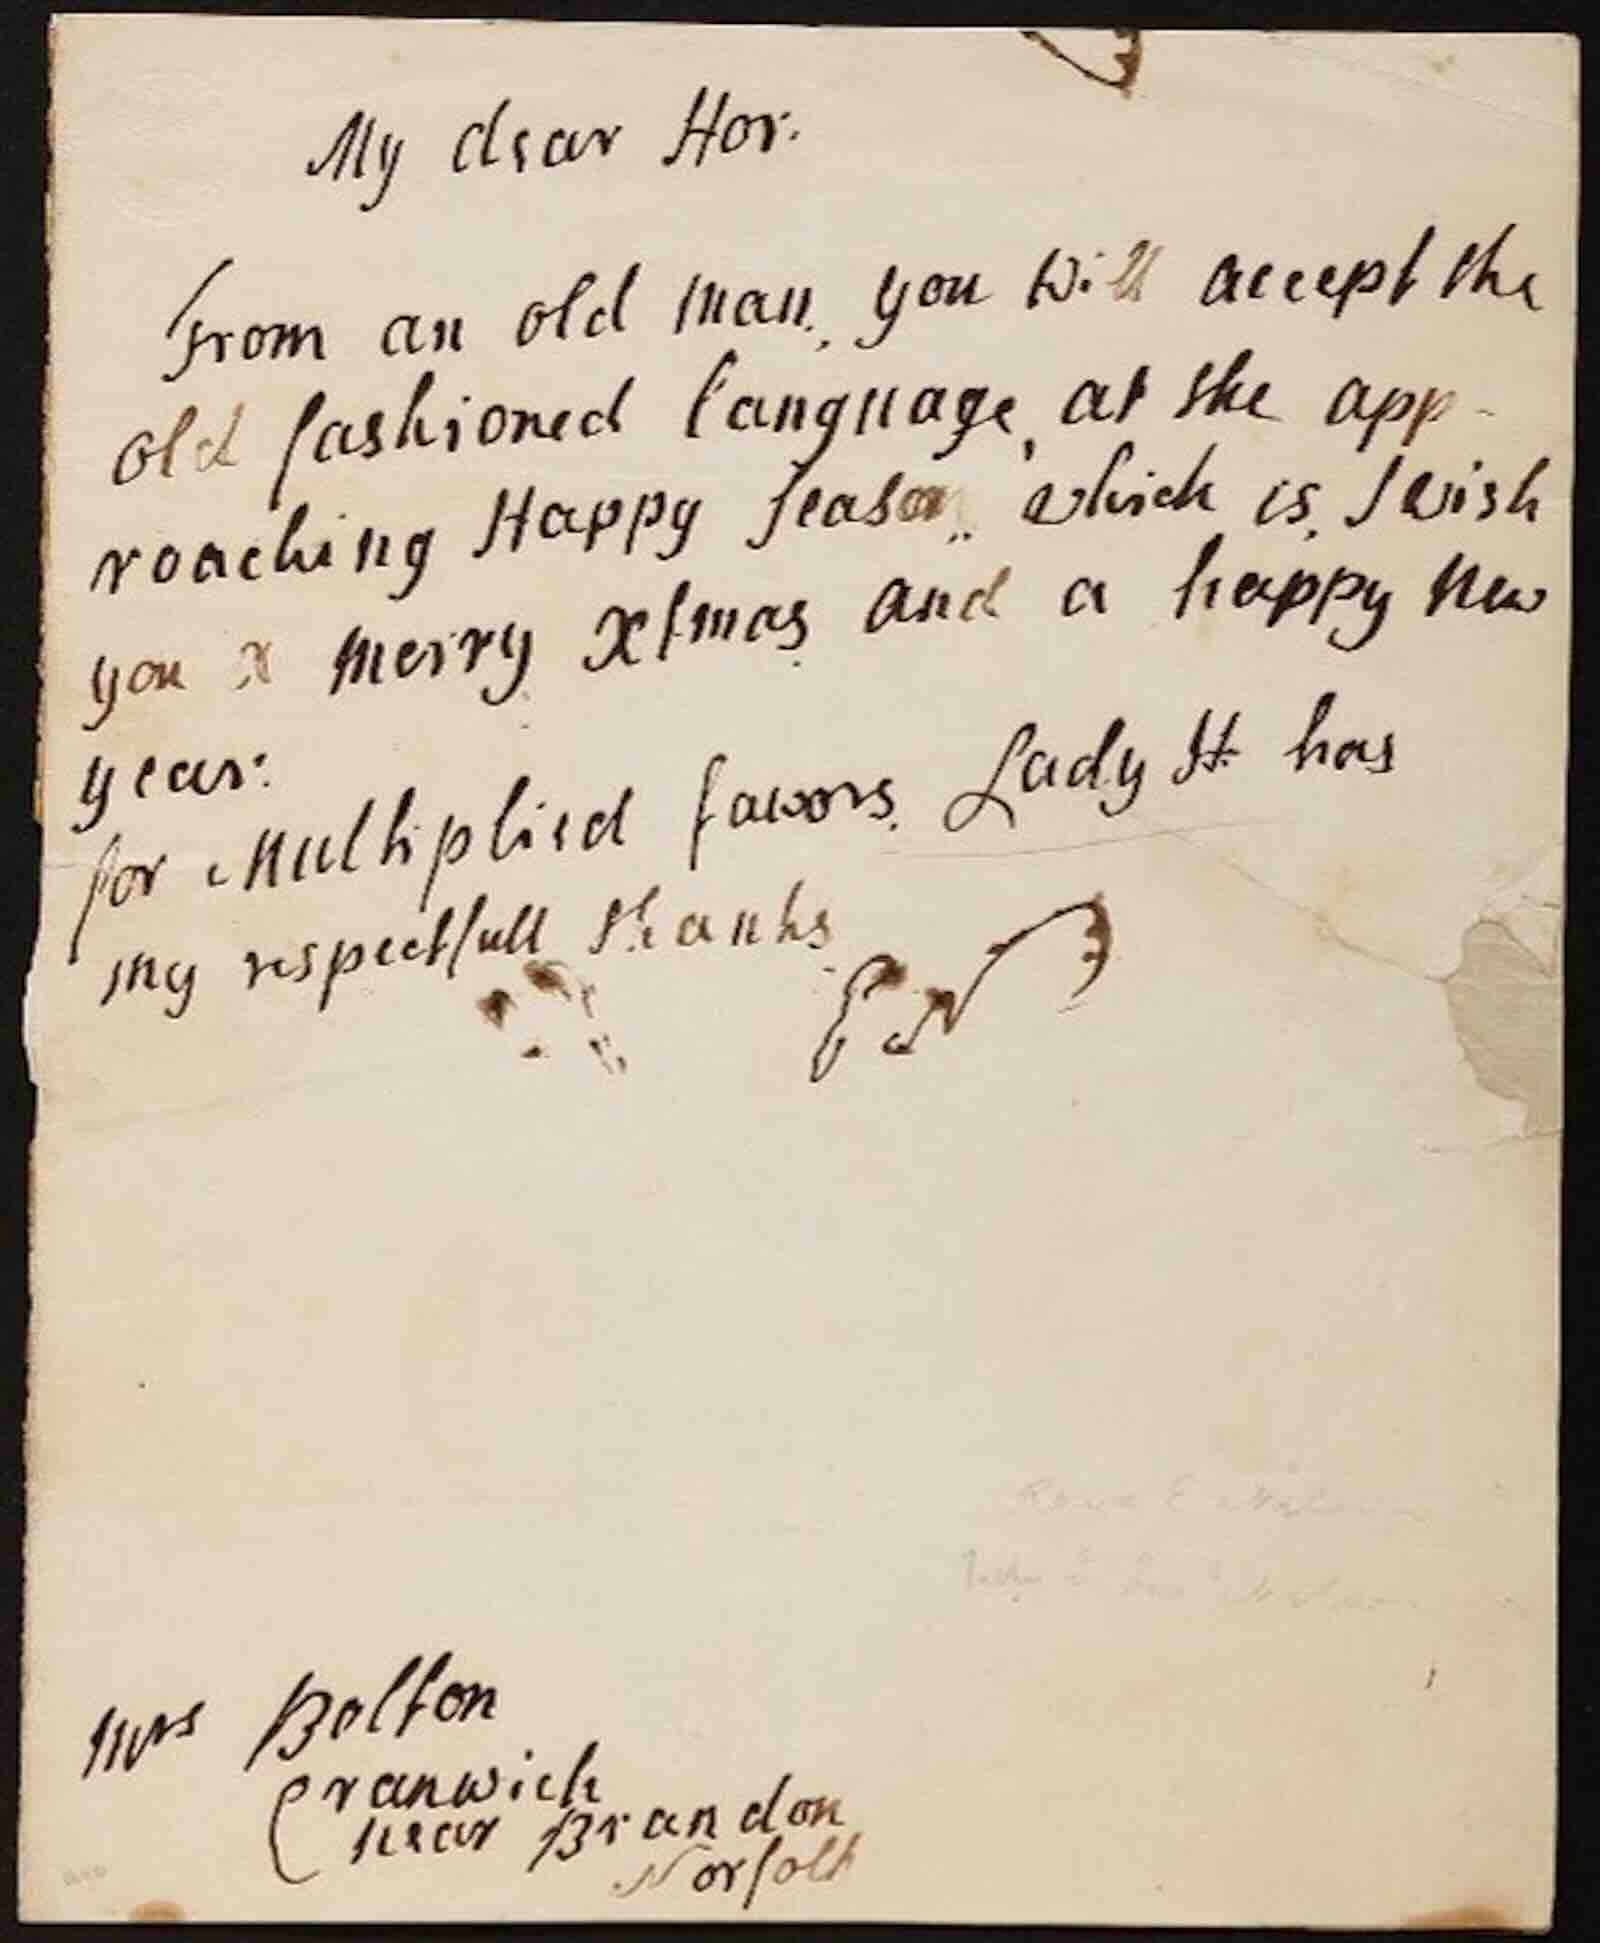 My dear Hor.
From an old man, you will accept the
old fashioned language, at the app-
roaching Happy Season, which is, I wish
you a merry Xtmas, and a happy New
year:
for Multiplied favors, Lady H. has
my respectfull thanks
EN
Mrs Bolton
Cranwich
near Brandon
Norfolk